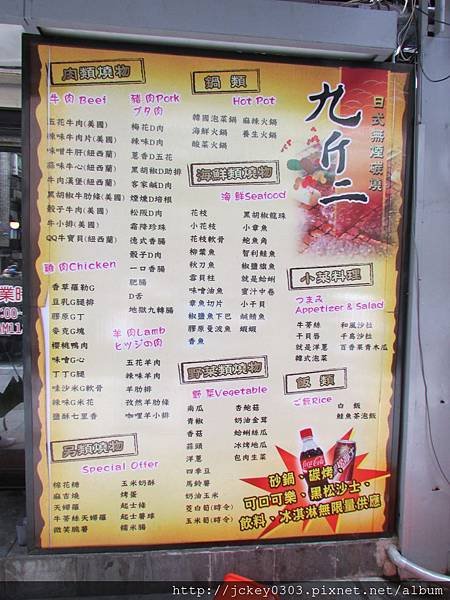 肉類燒物
牛肉Beef
五花牛肉(美國)
辣味牛肉片(美國)
味噌牛肝(紐西蘭)
蒜味牛心(紐西蘭)
牛肉漢堡(紐西蘭)
黑胡椒牛肋條(美國)
骰子牛肉(美國)
牛小排(美國)
QQ牛寶貝(紐西蘭)
豬肉Pork
ブタ肉
梅花D肉
辣味D肉
蔥香D五花
黑胡椒D助排
客家鹹D肉
煙燻D培根
松阪D肉
霜降珍珠
德式香腸
骰子D肉
一口香腸
肥腸
D舌
地獄九轉腸
雞肉Chicken
香草羅勒G
豆乳G腿排
膠原G丁
麥克G塊
櫻桃鴨肉
味噌G心
丁丁G腿
味沙米G軟骨
辣味G米花
鹽酥七里香
羊肉Lamb
ヒツジの肉
五花羊肉
辣味羊肉
羊肋排
孜然羊肋條
咖哩羊小排
另類燒物
Special Offer
棉花糖
麻吉燒
天婦羅
牛蒡絲天婦羅
微笑脆薯
玉米奶酥
烤蛋
起士條
起士薯球
糯米腸
鍋類
Hot Pot
韓國泡菜鍋
海鮮火鍋
酸菜火鍋
麻辣火鍋
養生火鍋
海鮮類燒物
海鮮Seafood
花枝
小花枝
花枝軟骨
柳葉魚
秋刀魚
雲貝柱
味噌油魚
章魚切片
椒鹽魚下巴
膠原曼波魚
香魚
黑胡椒龍珠
小章魚
鮑魚角
智利鮭魚
椒鹽旗魚
就是蛤蜊
蜜汁中卷
小干貝
鹹鯖魚
蝦蝦
野菜類燒物
野菜Vegetable
南瓜
青椒
香菇
蒜頭
洋蔥
四季豆
馬鈴薯
奶油玉米
茭白筍(時令)
玉米筍(時令)
杏鮑菇
奶油金茸
蛤蜊絲瓜
冰烤地瓜
包肉生菜
九斤二
日式無煙碳燒
小菜料理
つまみ
Appetizer & Salad
牛蒡絲
干貝唇
就是洋蔥
韓式泡菜
和風沙拉
千島沙拉
百香果青木瓜
飯類
ご飯Rice
白飯
鮭魚茶泡飯
砂鍋、碳烤、
可口可樂、黑松沙士、
飲料、冰淇淋無限量供應
http://jckey0303.pixnet.net/album